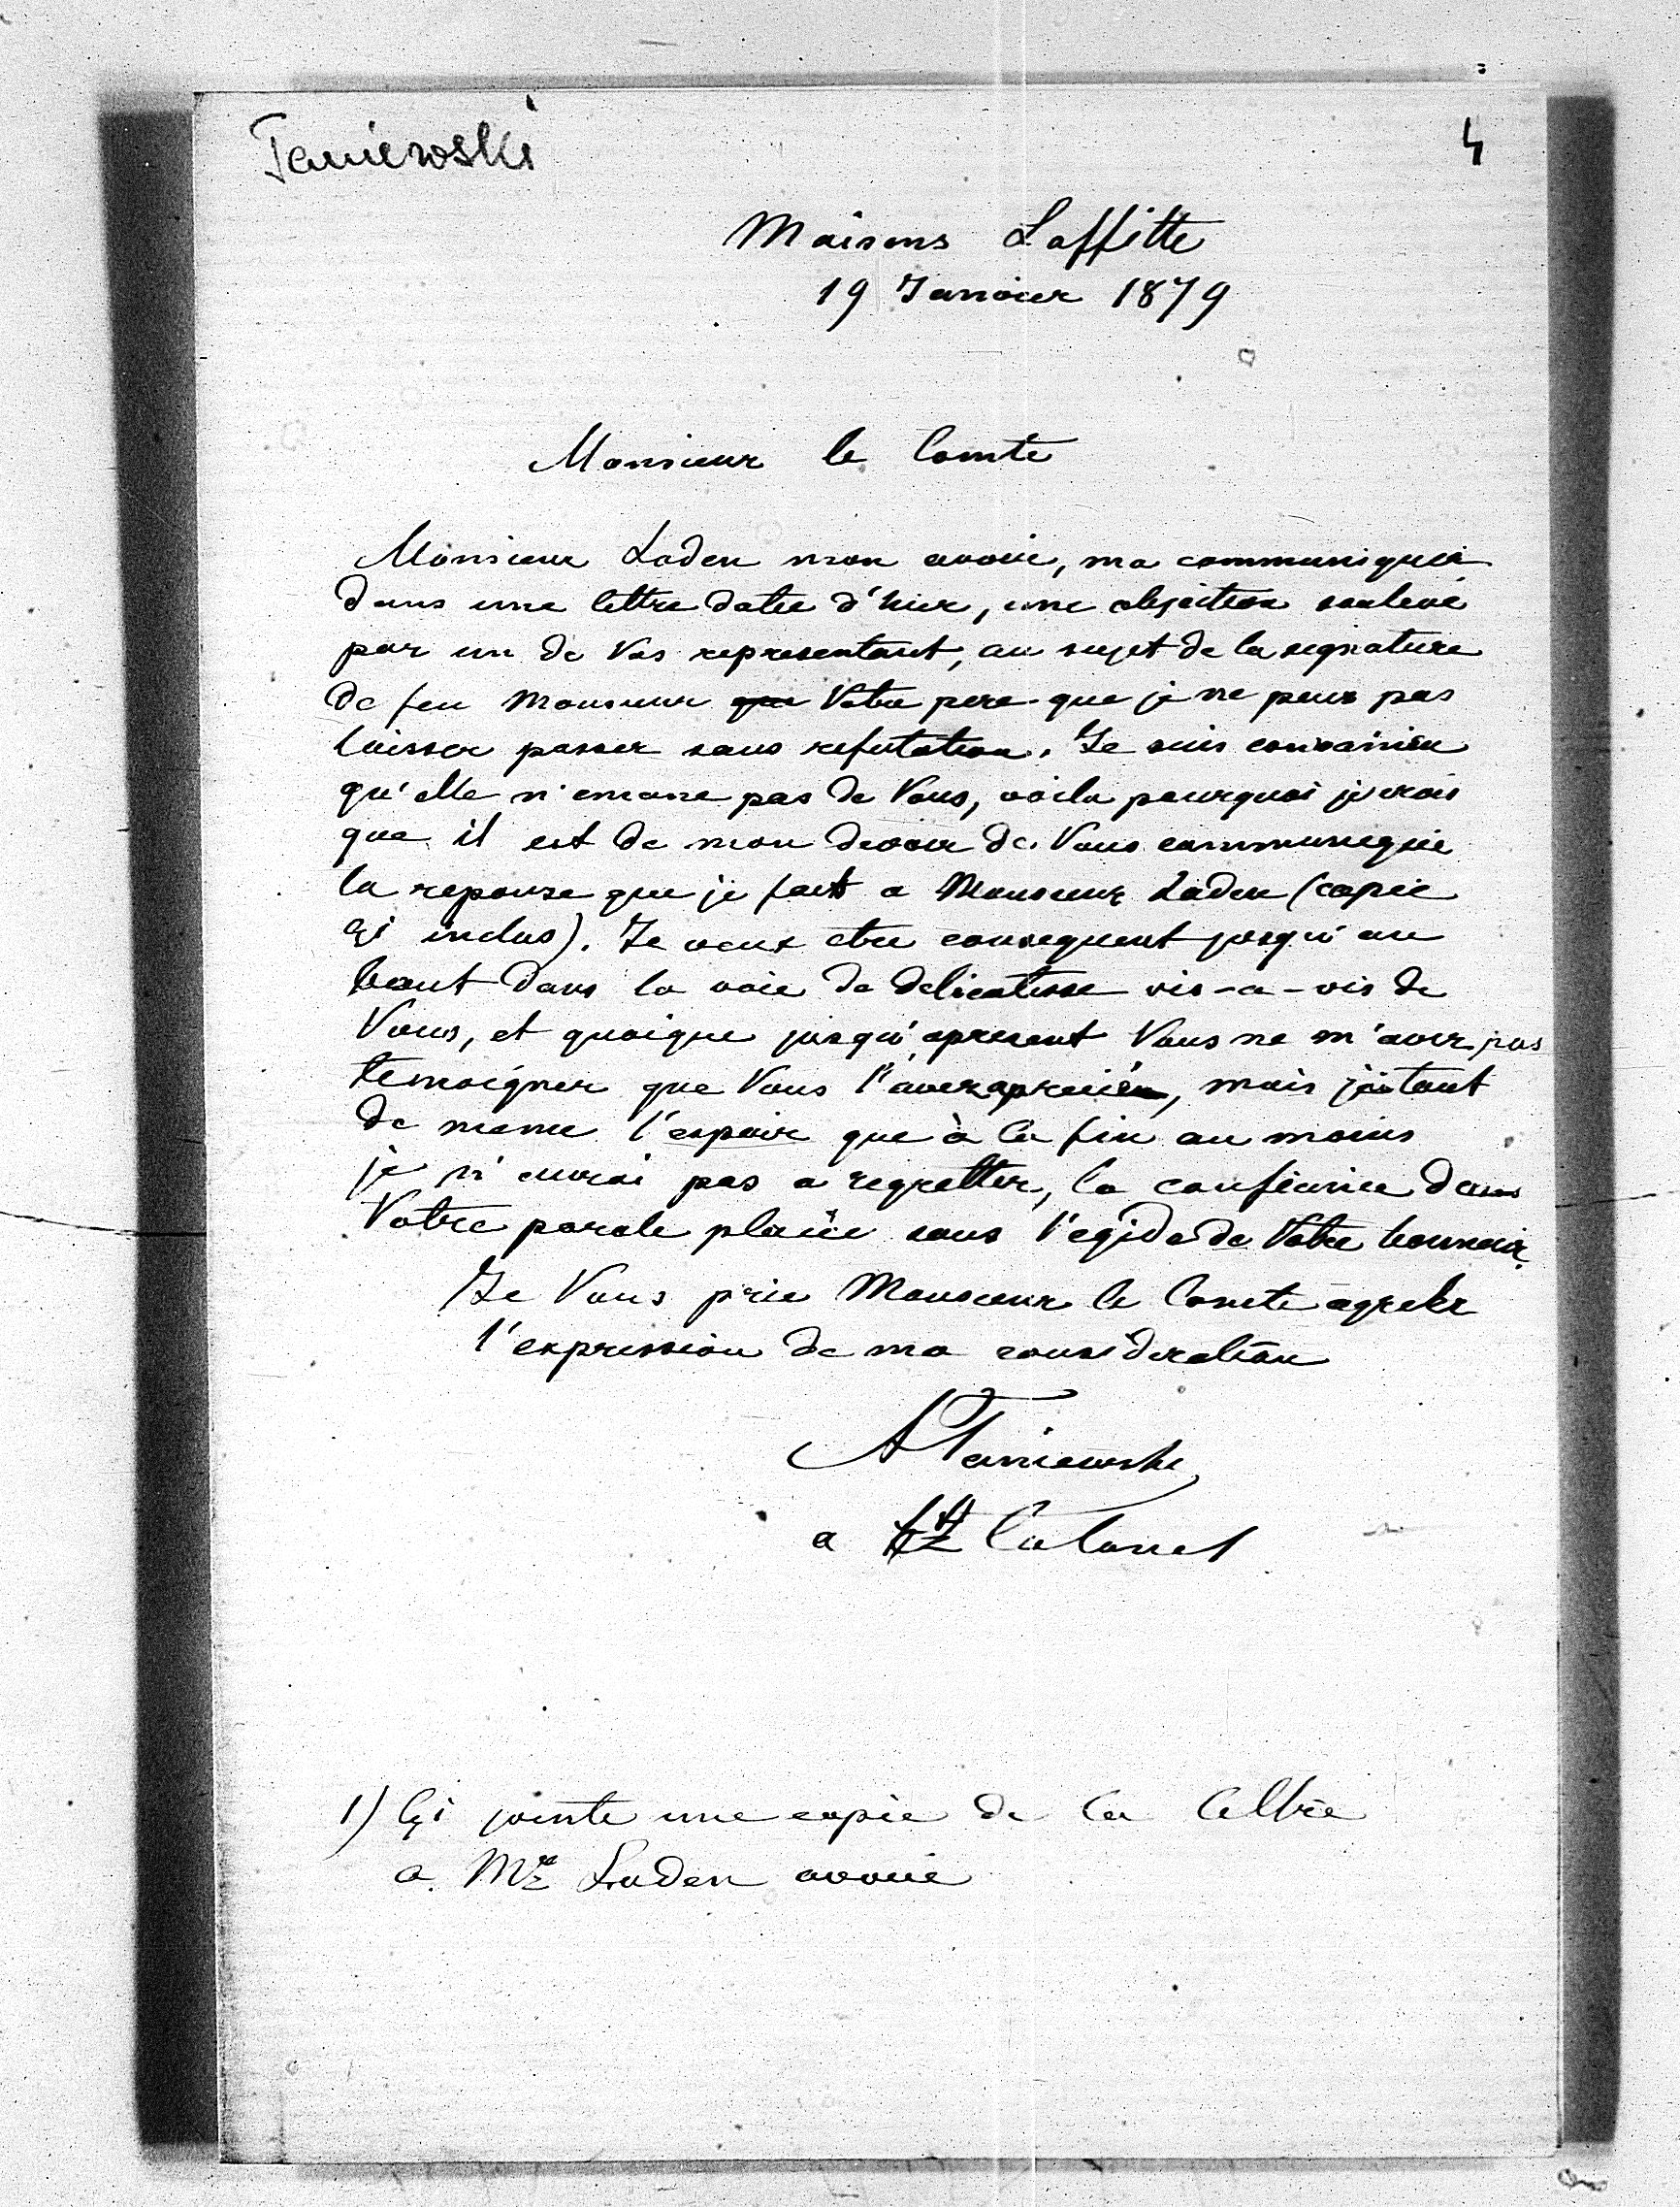 Taniewski
4
Maisons Laffitte
19 Janvier 1879
Monsieur le Comte
Monsieur Laden mon avoué, ma communiquer
dans une lettre datée d'hier, une objection soulevé
par un de Vos representant, au sujet de la signature
de feu Monsieur que Votre pere que je ne peux pas
laisser passer sans refutation. Je suis convaincu
qu'elle n'emane pas de Vous, voila pourquoi je crois
que il est de mon devoir de Vous communiquée
la reponse que je fait a Monsieur Laden (copie
çi inclus). Je veux etre consequent jusqu'au
bout dans la voie de delicatesse vis-a-vis de
Vous, et quoique jusqu'apresent Vous ne m'avez pas
temoigner que Vous l'avez apreciée, mais j'ai tout
de meme l'espoir que à la fin au moins
je n'aurai pas a regretter, la confiance dans
Votre parole placée sous l'egide de Votre honneur.
Je Vous prie Monsieur le Comte agreer
l'expression de ma consideration
A Taniewski
a Colonel
1) Çi jointe une copie de la lettre
a Mr Laden avoué